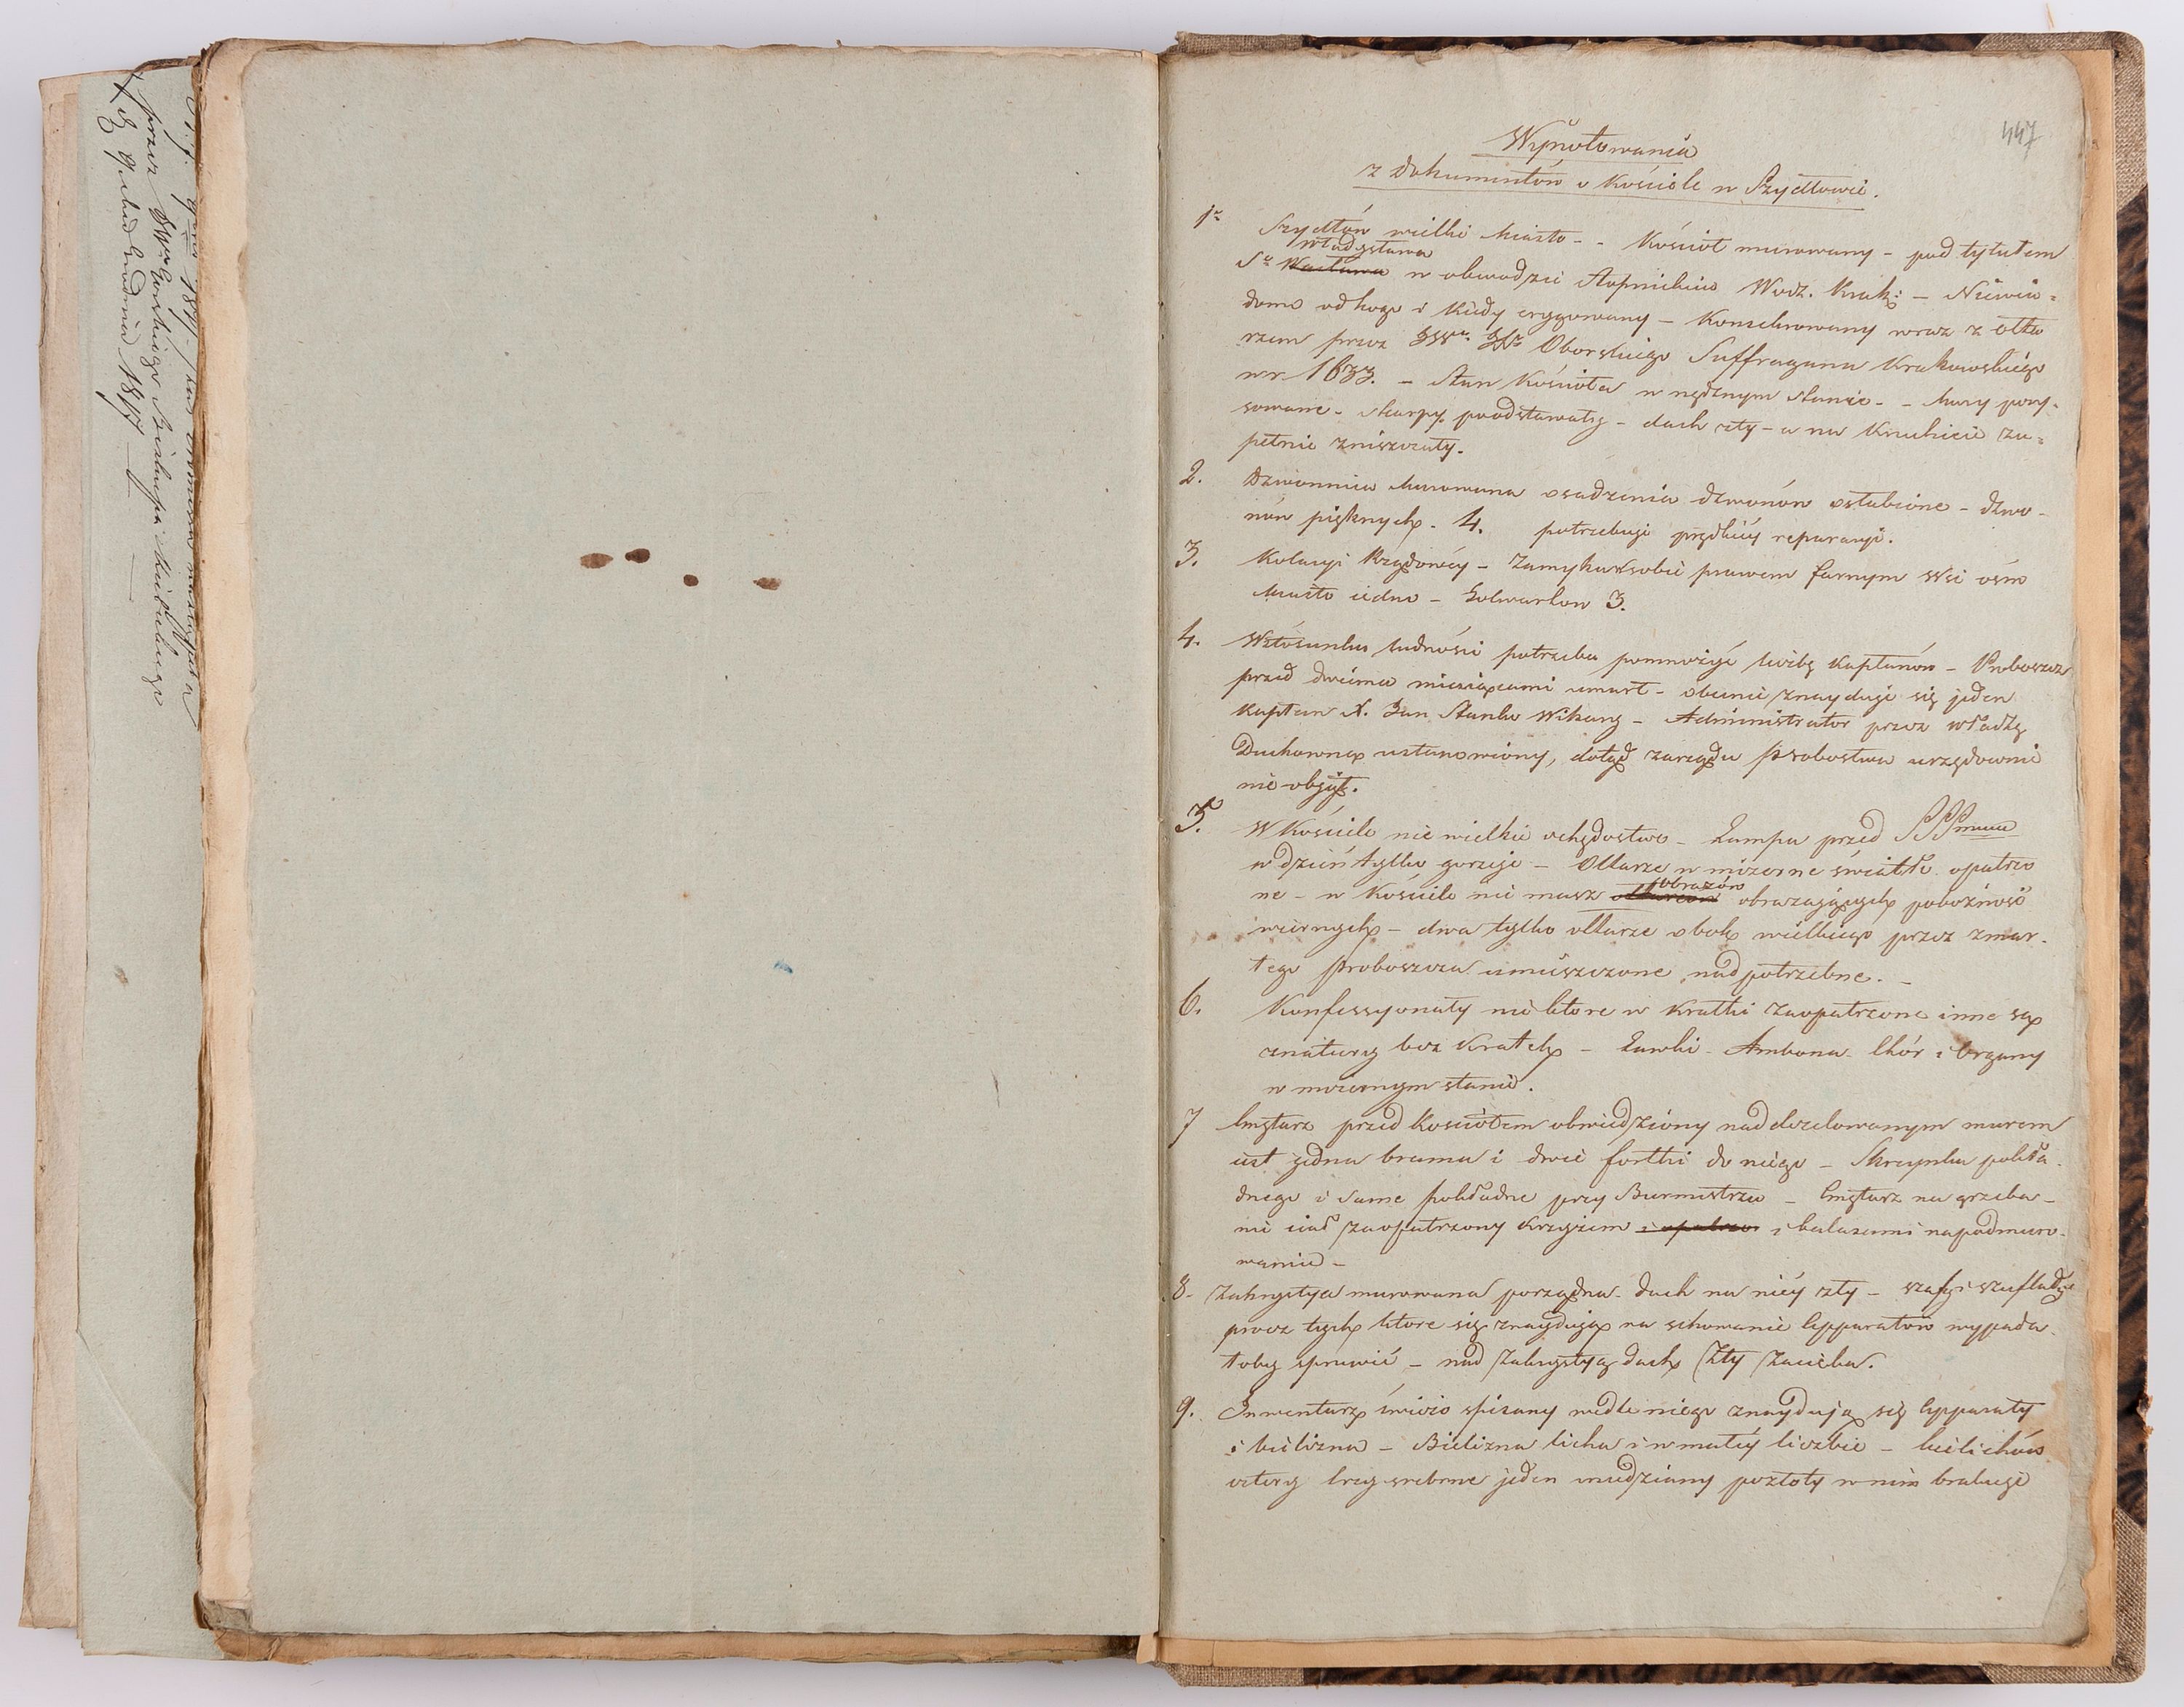 przez JWgo Górskiego Biskupa Kieleckiego
447
Wynotowania
z Dokumentów o Kościele w Szydłowie.
1o Szydłów wielki Miasto - - Kościół murowany - pod tytułem
Władysława
So Wacława w obwodzie Stopnickim Wodz. Krak: - Niewia=
domo od kogo i kiedy erygowany - Konsekrowany wraz z ołta
rzem przez JWo Oborskiego Suffragana Krakowskiego
w r. 1633. - Stan Kościoła w nędznym stanie - - Mury pory-
sowane - skarpy poodstawały - dach zły - a na Kruhcie zu=
pełnie zniszczały.
2. Dzwonnica Murowana osadzenia dzwonów osłabione - dzwo-
nów pięknych - 4. potrzebuje prędkiéy reparacyi.
3. Kolacyi Rządowéy - Zamyka w sobie prawem farnym Wsi ośm
Miasto iedno - Folwarkow 3.
4. W stósunku ludności potrzeba pomnożyć liczbę Kapłanów - Proboszcz
przed dwiema miesiącami umarł - obecnie znayduje się jeden
Kapłan X. Jan Stanko Wikary - Administrator przez władzę
Duchowną ustanowiony, dotąd zarządu probostwa urzędownie
nie objął.
5. W Kościele nie wielkie ochędostwo - Lampa przed
w dzień tylko goreje - Ołtarze w mizerne światło opatrzo
ne - w Kościele nie masz ołtarzów obrazów obrażających pobożność
wiernych - dwa tylko ołtarze obok wielkiego przez zmar-
łego proboszcza umieszczone nad potrzebne. -
6. Konfessyonały nie ktore w Kratki zaopatrzone inne są
z natury bez Kratek - Ławki - Ambona - Chór i Organy
w mizernym stanie.
7 Cmętarz przed Kosciółem obwiedziony nad dezelowanym murem
iest jedna brama i dwie fortki do niego - Skrzynka pokła-
dnego i same pokładne przy Burmistrzu - Cmętarz na grzeba-
nie ciał zaopatrzony Krzyżem i opatrzo i balasami na podmuro-
waniu -
8. Zakrystya murowana porządna - dach na niéy zły - szafy i szuflady
procz tych ktore się znaydują na schowanie Apparatów wypada-
łoby sprawić - nad Zakrystyą dach zły zacieka.
9. Inwentarz świeżo spisany wedle niego znaydują się Apparaty
i bielizna - Bielizna licha i w małéy liczbie - kielichów
cztery trzy srebrne jeden miedziany pozłoty w nim brakuje